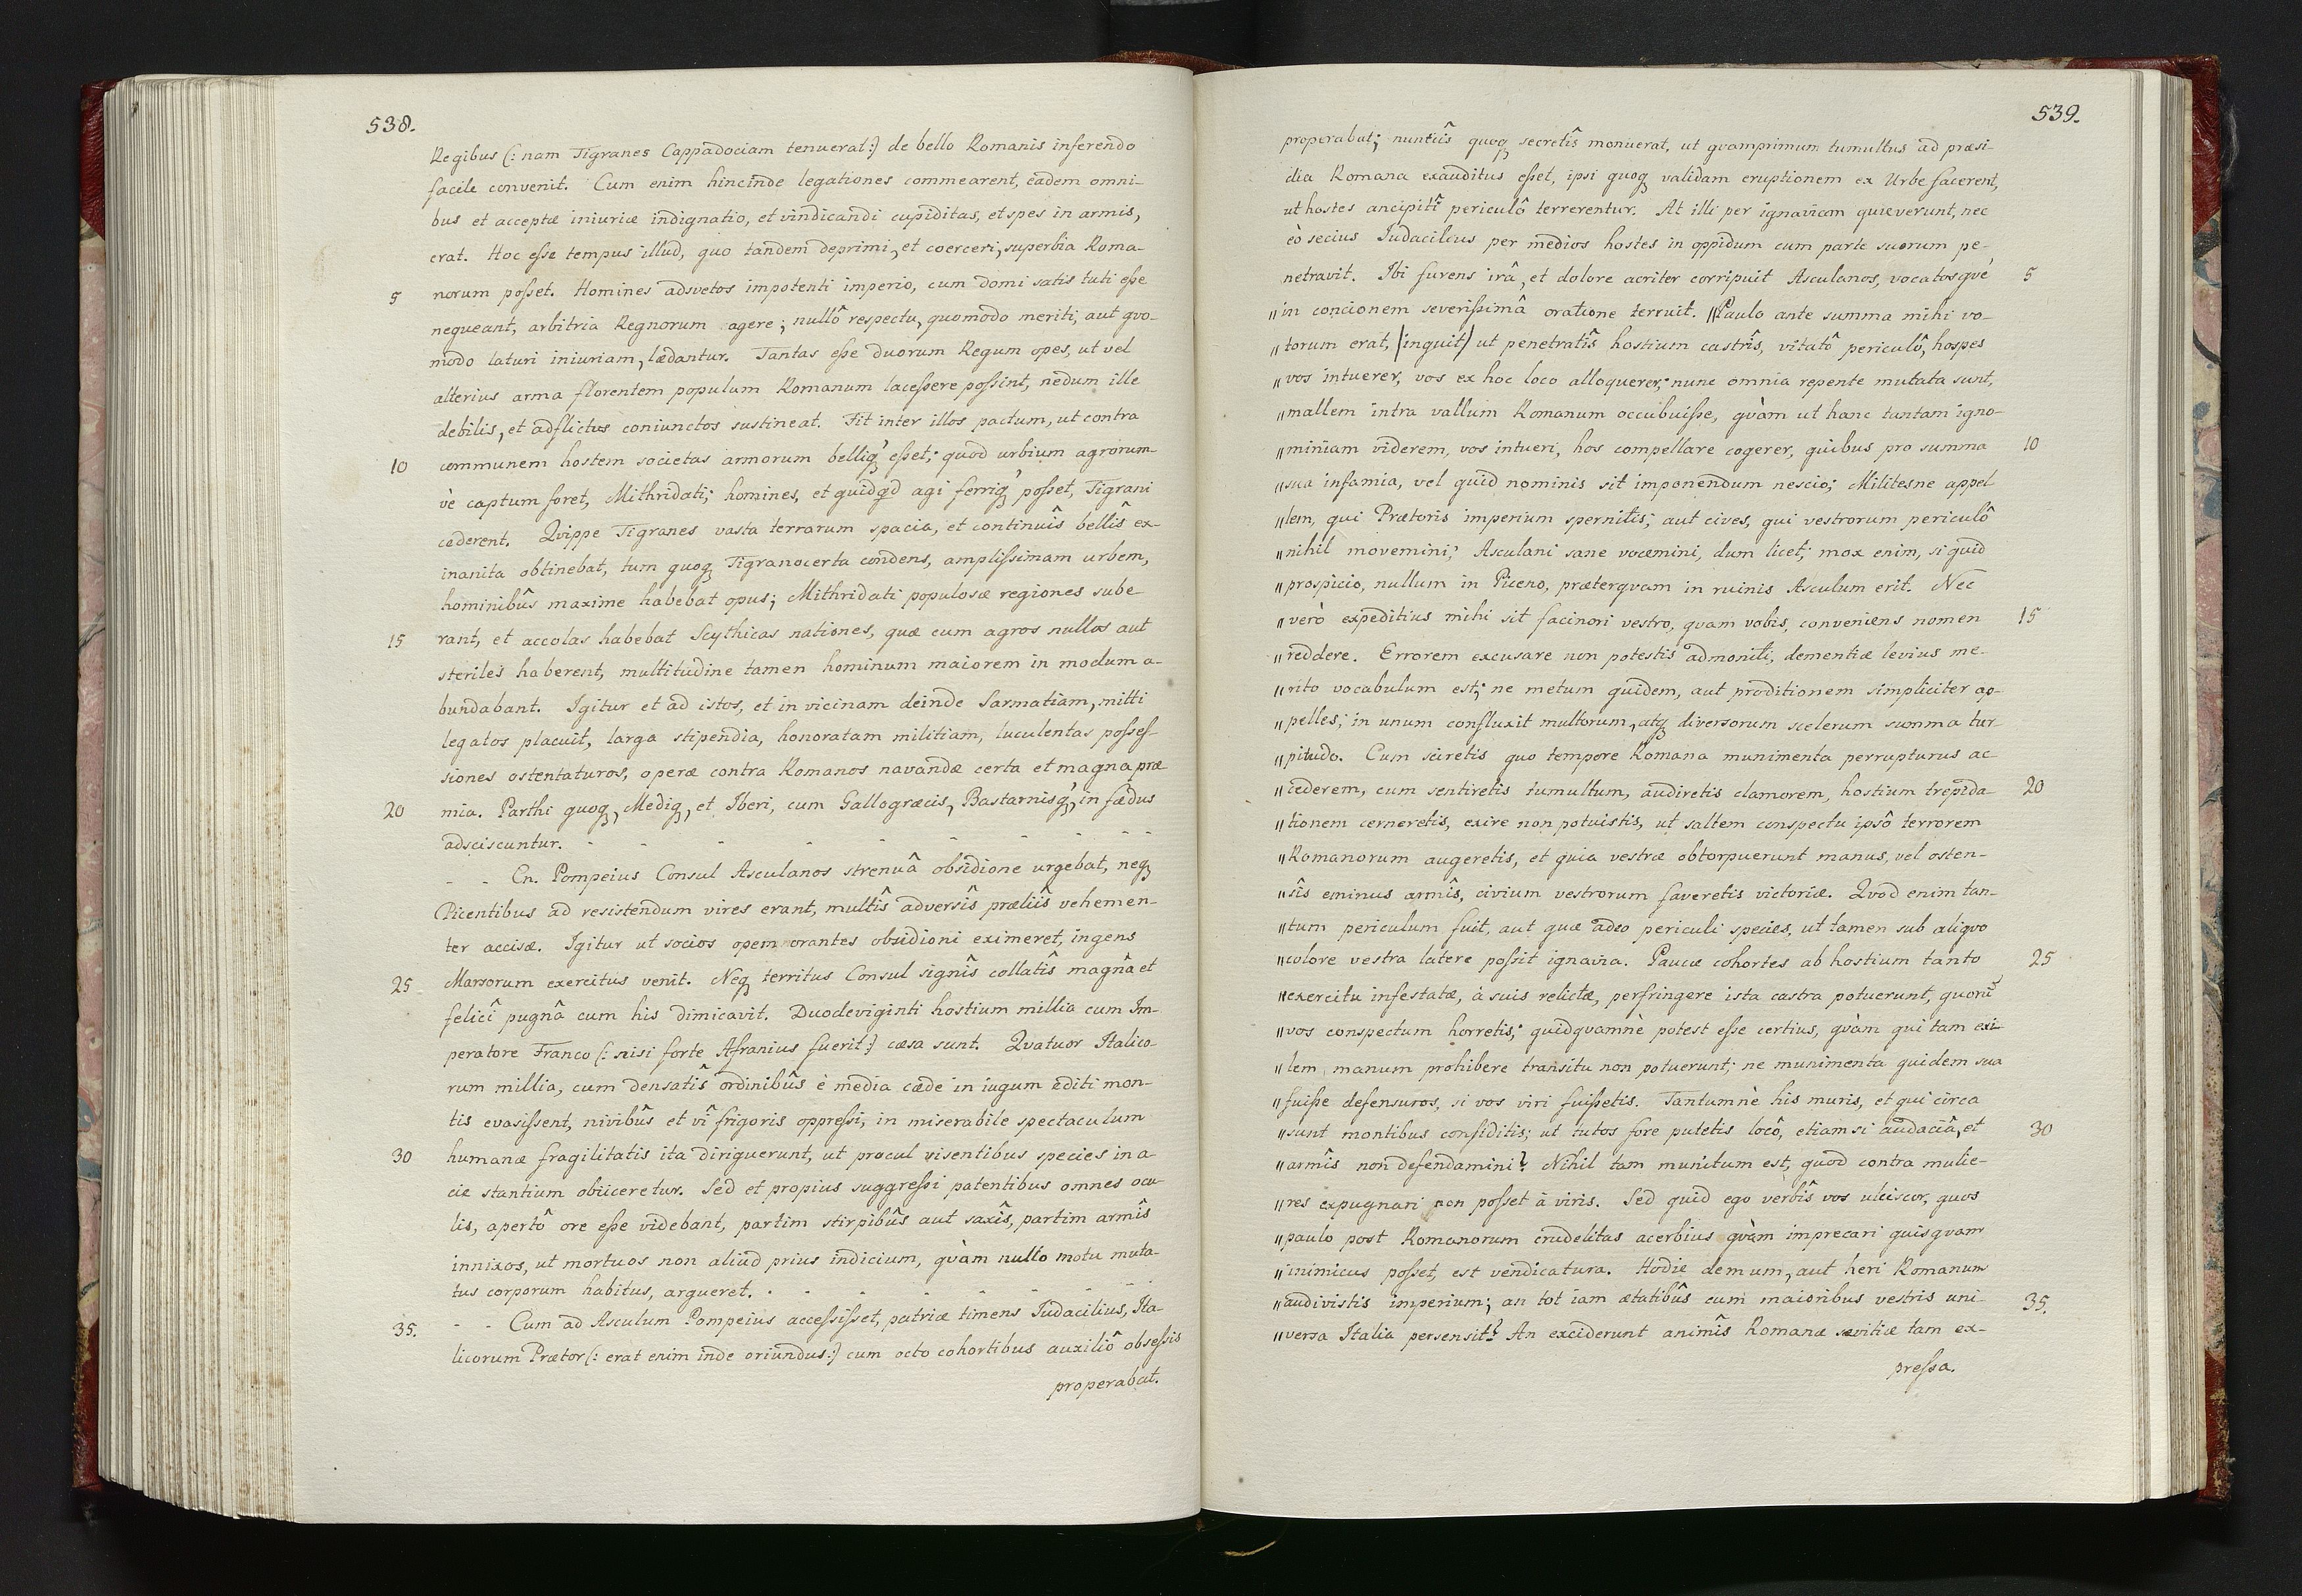 538.
Regibus (: nam Tigranes Cappadociam tenuerat :) de bello Romanis inferendo
facile convenit. Cum enim hincinde legationes commearent, eadem omni-
bus et acceptæ iniuriæ indignatio, et vindicandi cupiditas, et spes in armis,
erat. Hoc eſse tempus illud, quo tandem deprimi, et coerceri, superbia Roma-
5 norum poſset. Homines adsvetos impotenti imperio, cum domi satis tuti eſse
nequeant, arbitria Regnorum agere; nullô respectu, quomodo meriti, aut qvo-
modo laturi iniuriam, lædantur. Tantas eſse duorum Regum opes, ut vel
alterius arma florentem populum Romanum laceſsere poſsint, nedum ille
debilis, et adflictus coniunctos sustineat. Fit inter illos pactum, ut contra
10 communem hostem societas armorum belliq́ꝫ eſset; quod urbium agrorum-
vè captum foret, Mithridati; homines, et quidqd agi ferriq́ꝫ poſset, Tigrani
cæderent. Qvippe Tigranes vasta terrarum spacia, et continuîs bellîs ex-
inanita obtinebat, tum quoqꝫ Tigranocerta condens, ampliſsimam urbem,
hominibûs maxime habebat opus; Mithridati populosæ regiones sube-
15 rant, et accolas habebat Scythicas nationes, quæ cum agros nullos aut
steriles haberent, multitudine tamen hominum maiorem in modum a-
bundabant. Igitur et ad istos, et in vicinam deinde Sarmatiam, mitti
legatos placuit, larga stipendia, honoratam militiam, luculentas poſseſ-
siones ostentaturos, operæ contra Romanos navandæ certa et magna præ
20 mia. Parthi quoqꝫ, Mediqꝫ, et Iberi, cum Gallogræcis, Bastarnisq́ꝫ, in fædus
adsciscuntur. - - - - - - - - -
- - Cn. Pompeius Consul Asculanos strenuâ obsidione urgebat, neqꝫ
Picentibus ad resistendum vires erant, multîs adversîs præliîs vehemen-
ter accisæ. Igitur ut socios opem orantes obsidioni eximeret, ingens
25 Marsorum exercitus venit. Neqꝫ territus Consul signîs collatîs magnâ et
felicî pugnâ cum his dimicavit. Duodeviginti hostium millia cum Im-
peratore Franco (: nisi forte Afranius fuerit :) cæsa sunt. Qvatuor Italico-
rum millia, cum densatîs ordinibûs è media cæde in iugum editi mon-
tis evasiſsent, nivibûs et vî frigoris oppreſsi, in miserabile spectaculum
30 humanæ fragilitatis ita diriguerunt, ut procul visentibus species in a-
cie stantium obiiceretur. Sed et propius suggreſsi patentibus omnes ocu-
lis, apertô ore eſse videbant, partim stirpibûs aut saxîs, partim armîs
innixos, ut mortuos non aliud prius indicium, qvàm nullo motu muta-
tus corporum habitus, argueret. - - - - - - - -
35. - - Cum ad Asculum Pompeius acceſsiſset, patriæ timens Iudacilius, Ita-
licorum Prætor (: erat enim inde oriundus :) cum octo cohortibus auxiliô obseſsis
properabat.
539.
properabat; nuntiîs quoqꝫ secretîs monuerat, ut qvamprimum tumultus ad præsi-
dia Romana exauditus eſset, ipsi quoqꝫ validam eruptionem ex Urbe facerent,
ut hostes ancipitî periculô terrerentur. At illi per ignaviam quieverunt, nec
eò secius Iudacilius per medios hostes in oppidum cum parte suorum pe-
netravit. Ibi furens irâ, et dolore acriter corripuit Asculanos, vocatosqvè 5
〃in concionem severiſsimâ oratione terruit. 〃Paulo ante summa mihi vo-
〃torum erat, |inquit| ut penetratîs hostium castrîs, vitatô periculô, hospes
〃vos intuerer, vos ex hoc loco alloquerer; nunc omnia repente mutata sunt,
〃mallem intra vallum Romanum occubuiſse, qvàm ut hanc tantam igno-
〃miniam viderem, vos intueri, hos compellare cogerer, quibus pro summa 10
〃sua infamia, vel quid nominis sit imponendum nescio; Militesne appel
〃lem, qui Prætoris imperium spernitis; aut cives, qui vestrorum periculô
〃nihil movemini; Asculani sane vocemini, dum licet; mox enim, si quid
〃prospicio, nullum in Piceno, præterqvam in ruinis Asculum erit. Nec
〃verò expeditius mihi sit facinori vestro, qvam vobis, conveniens nomen 15
〃reddere. Errorem excusare non potestis admoniti, dementiæ levius me-
〃rito vocabulum est; ne metum quidem, aut proditionem simpliciter ap-
〃pelles; in unum confluxit multorum, atqꝫ diversorum scelerum summa tur
〃pitudo. Cum sciretis quo tempore Romana munimenta perrupturus ac-
〃cederem, cum sentiretis tumultum, audiretis clamorem, hostium trepida- 20
〃tionem cerneretis, exire non potuistis, ut saltem conspectu ipsô terrorem
〃Romanorum augeretis, et quia vestræ obtorpuerunt manus, vel osten-
〃sîs eminus armîs, civium vestrorum faveretis victoriæ. Qvod enim tan-
〃tum periculum fuit, aut quæ adeo periculi species, ut tamen sub aliqvo
〃colore vestra latere poſsit ignavia. Paucæ cohortes ab hostium tanto 25
〃exercitu infestatæ, à suis relictæ, perfringere ista castra potuerunt, quorũ
〃vos conspectum horretis; quidqvamnè potest eſse certius, qvàm qui tam exi-
〃lem manum prohibere transitu non potuerunt; ne munimenta quidem sua
〃fuiſse defensuros, si vos viri fuiſsetis. Tantumnè his muris, et qui circa
〃sunt montibus confiditis; ut tutos fore putetis locô, etiamsi audaciâ, et 30
〃armîs non defendamini? Nihil tam munitum est, quod contra mulie-
〃res expugnari non poſset à viris. Sed quid ego verbîs vos ulciscor, quos
〃paulo post Romanorum crudelitas acerbius qvàm imprecari quisqvam
〃inimicus poſset, est vendicatura. Hodie demum, aut heri Romanum
〃audivistis imperium; an tot iam ætatibûs cum maioribus vestris uni- 35.
〃versa Italia persensit? An exciderunt animîs Romanæ sævitiæ tam ex-
preſsa.